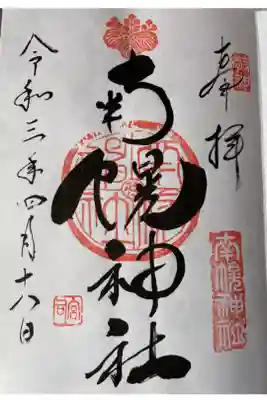 奉拝
南幌神社
南幌神社
令和三年四月十八日
宮司